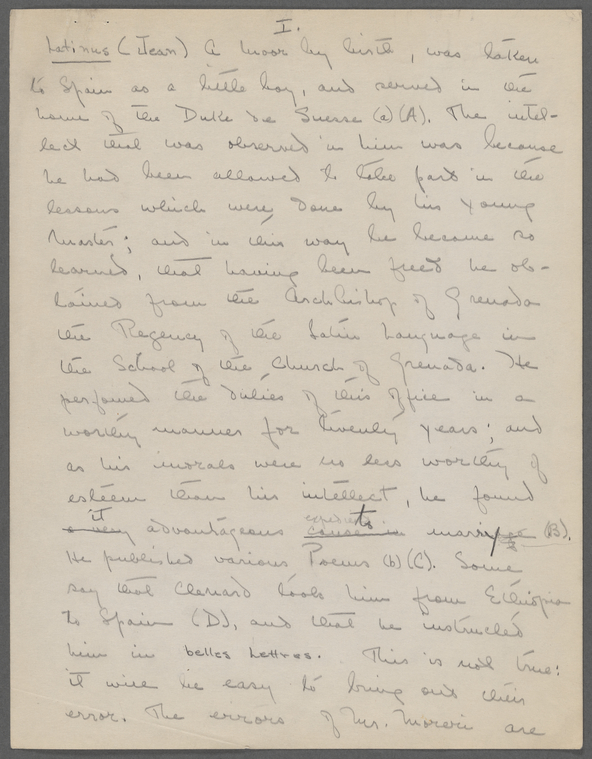 I.
Latinus (Jean) A moor by birth, was taken
to Spain as a little boy, and served in the
home of the Duke de Suesse (a) (A). The intel-
lect that was observed in him was because
he had been allowed to take part in the
lessons which were done by his young
master; and in this way he became so
learned, that having been freed he ob-
tained from the Archbishop of Grenada
the Regency of the Latin Language in
the School of the Church of Grenada. He
performed the duties of this office in a
worthy manner for twenty years; and
as his morals were no less worthy of
esteem than his intellect, he found
it advantageous to marry (B).
He published various Poems (b) (C). Some
say that Clenard took him from Ethiopia
to Spain (D), and that he instructed
him in belles Lettres. This is not true:
it will be easy to bring out their
error. The errors of Mr. Moreri are